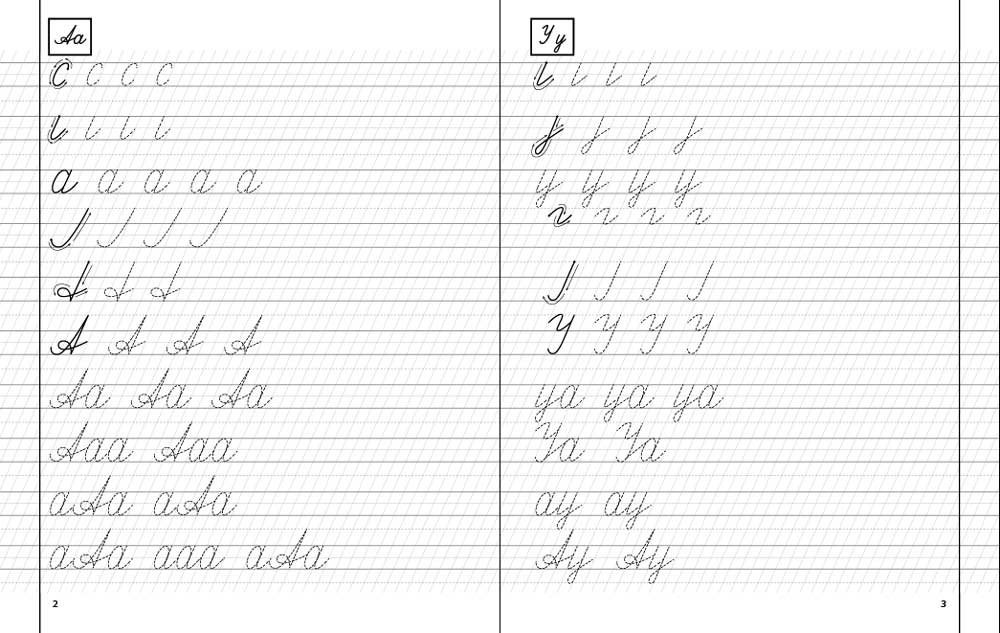 Аа
а а а а а
А А А А
Аа Аа Аа
Ааа Ааа
аАа аАа
аАа ааа аАа
2
Уу
у у у у
У У У У
уа уа уа
Уа Уа
ау ау
Ау Ау
3